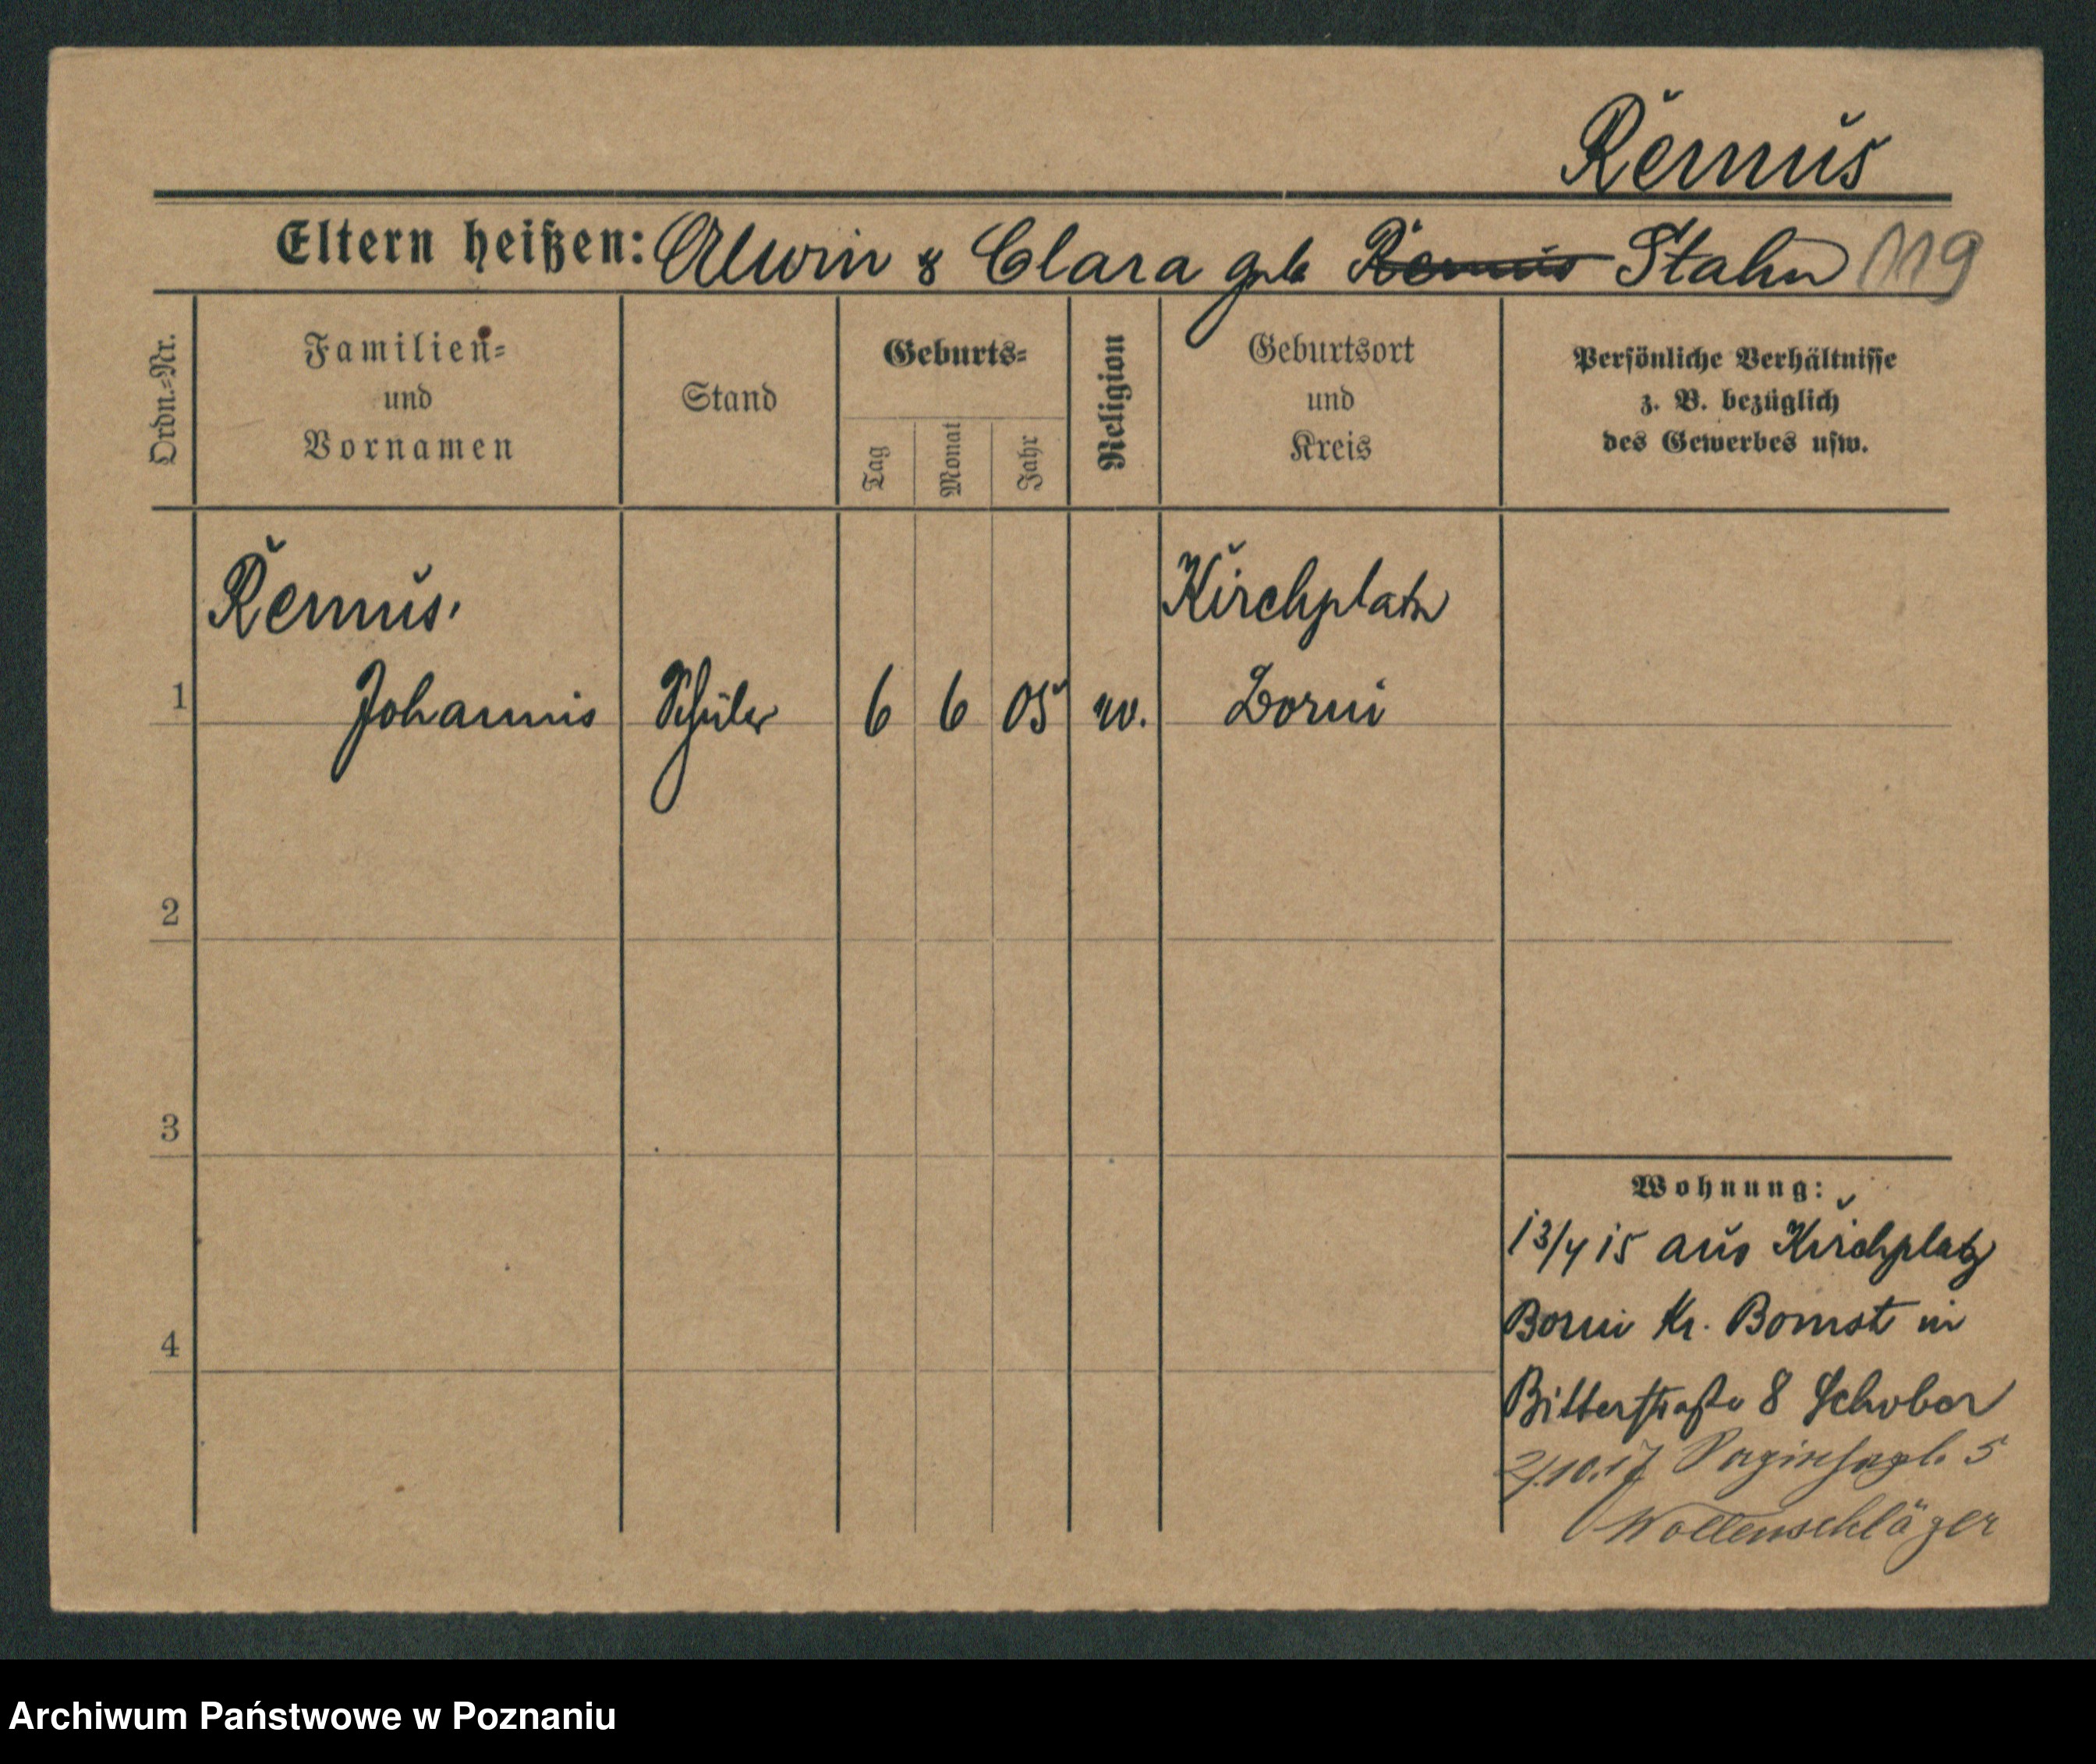 Remus
Eltern heißen: Alwin & Clara geb Remus Stahn 119
Ordn.-Nr.
Familien-
und
Vornamen
Stand
Geburts-
Tag
Monat
Jahr
Religion
Geburtsort
und
Kreis
Persönliche Verhältnisse
z. B. bezüglich
des Gewerbes usw.
Remus. Kirchplatz
1 Johannis Schüler 6 6 05 Borui
2
3
4
Wohnung:
13/4 15 aus Kirchplatz
Borui Kr. Bomst in
Bitterstraße 8 Schober
2/10.17 5
Wollenschläger
Archiwum Państwowe w Poznaniu